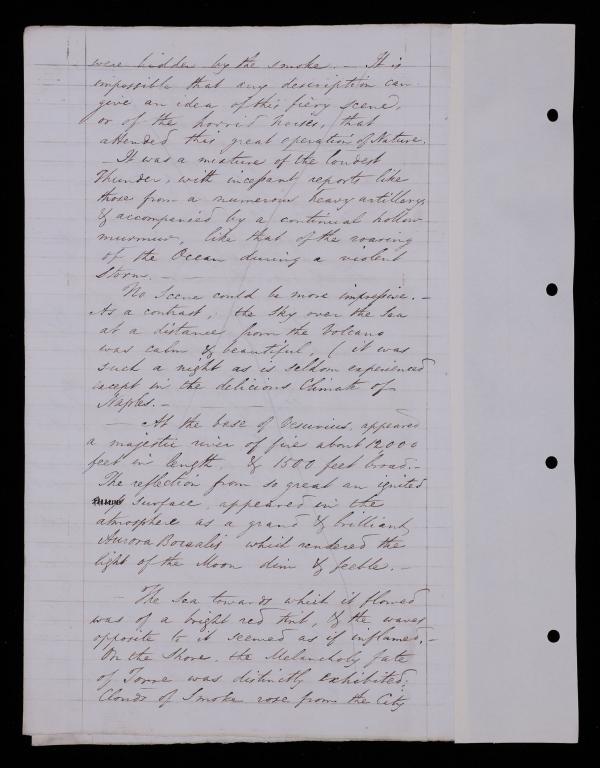 were hidden by the smoke. – It is
impossible that any description can
give an idea of this fiery scene,
or of the horrid noises, that
attended this great operation of Nature.
– It was a mixture of the loudest
Thunder, with incessant reports like
those from a numerous heavy artillery,
& accompanied by a continual hollow
murmur, like that of the roaring
of the Ocean during a violent
Storm. –
No Scene could be more impressive. –
As a contrast, the sky over the Sea
at a distance from the Volcano
was calm & beautiful, ( it was
such a night as is seldom experienced
except in the delicious Climate of
Naples. –
– At the base of Vesuvius, appeared
a majestic river of fire about 12000
feet in length, & 1500 feet broad. –
The reflection from so great an ignited
surface, appeared in the
atmosphere as a grand & brilliant
Aurora Borealis which rendered the
light of the Moon dim & feeble. –
– The Sea towards which it flowed
was of a bright red tint, & the waves
opposite to it seemed as if inflamed. –
On the Shore, the Melancholy fate
of Torre was distinctly exhibited;
Clouds of Smoke rose from the City